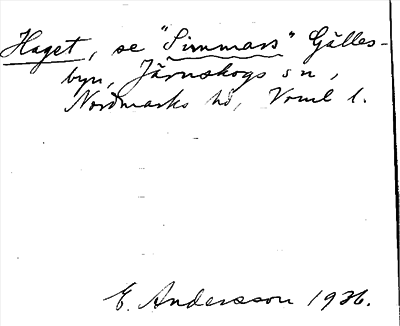 Haget, se "Simmars" Gälles-
byn, Järnskogs sn,
Nordmarks hd, Vrml l.
E. Andersson 1926.